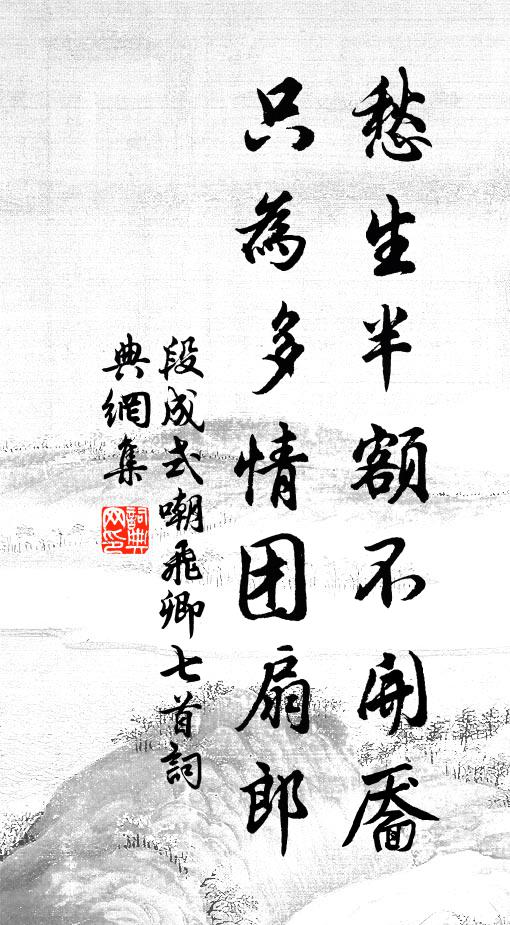 愁生半額不開靨
只為多情团扇郎
段成式嘲飛卿七首詞
典網集
詞典網印